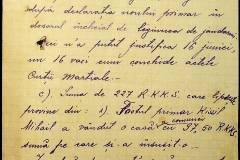 după declarația noului primar in
dosarul incheiat de Legiunea de jandarmi.
Deci n'a putut justifica 16 junici,
nu 16 vaci cum conchide actele
Curtii Marțiale.
c). Suma de 227 R.K.K.S. care
provine din: 1) Fostul primar
comunist
Mihail a vândut o casă cu 57,50 R.K.K.S
sumă pe care și-a insușit-o.